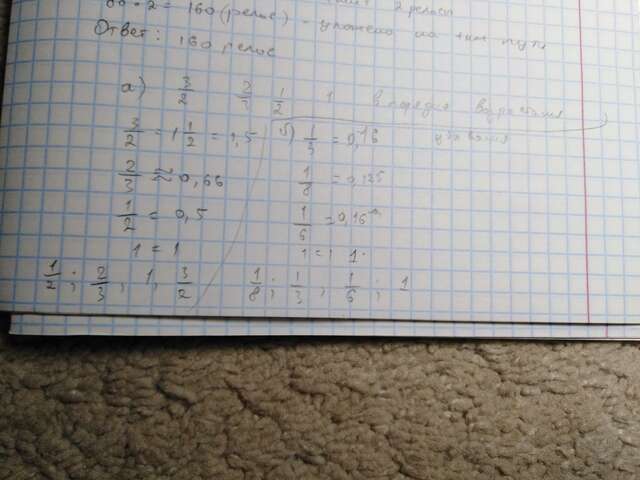 80 · 2 = 160 (релос) - уложено на
Ответ: 160 релос
а) 3/2 2/3 1/2 1 в порядке возрастания
3/2 = 1 1/2 = 1,5
2/3 ≈ 0,66
1/2 = 0,5
1 = 1
1/2 ; 2/3 ; 1, 3/2
б) 1/3 = 0,16
1/8 = 0,125
1/6 = 0,16
1 = 1 1.
1/8 ; 1/3 ; 1/6 ; 1